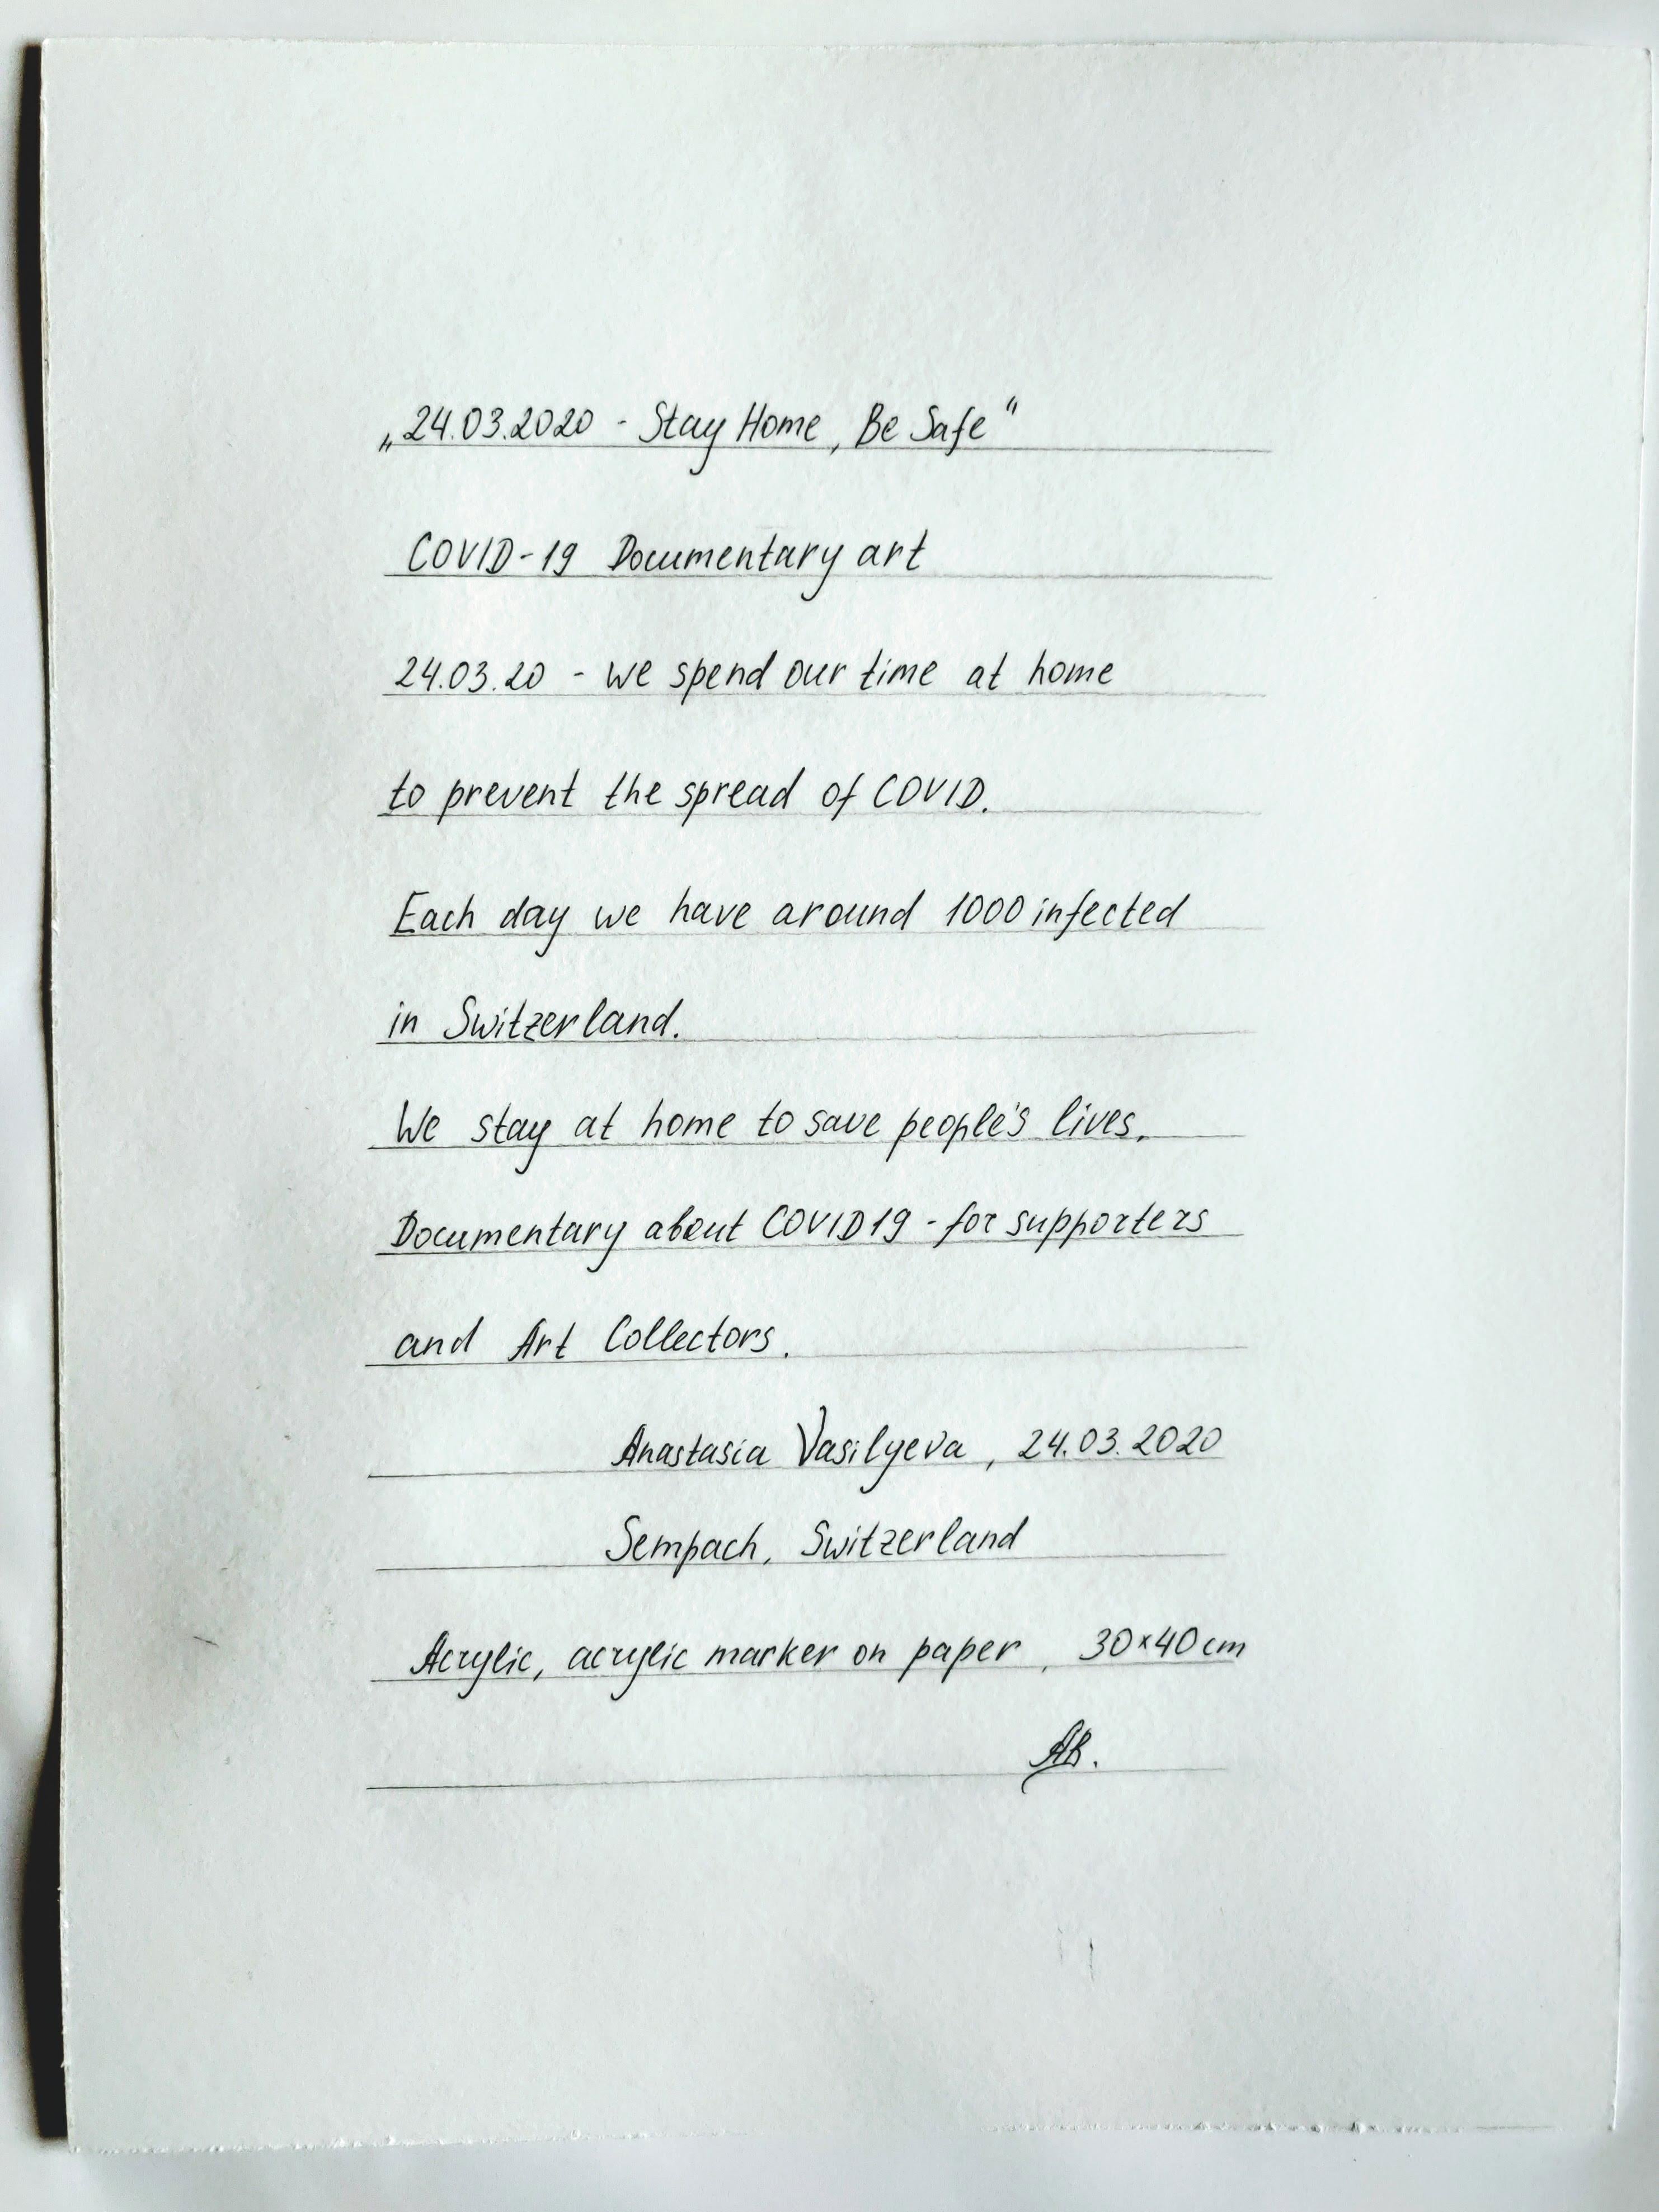 „24.03.2020 - Stay Home, Be Safe“
COVID-19 Documentary art
24.03.20 - we spend our time at home
to prevent the spread of COVID.
Each day we have around 1000 infected
in Switzerland.
We stay at home to save people's lives.
Documentary about COVID19 - for supporters
and Art Collectors.
Anastasia Vasilyeva, 24.03.2020
Sempach, Switzerland
Acrylic, acrylic marker on paper, 30×40cm